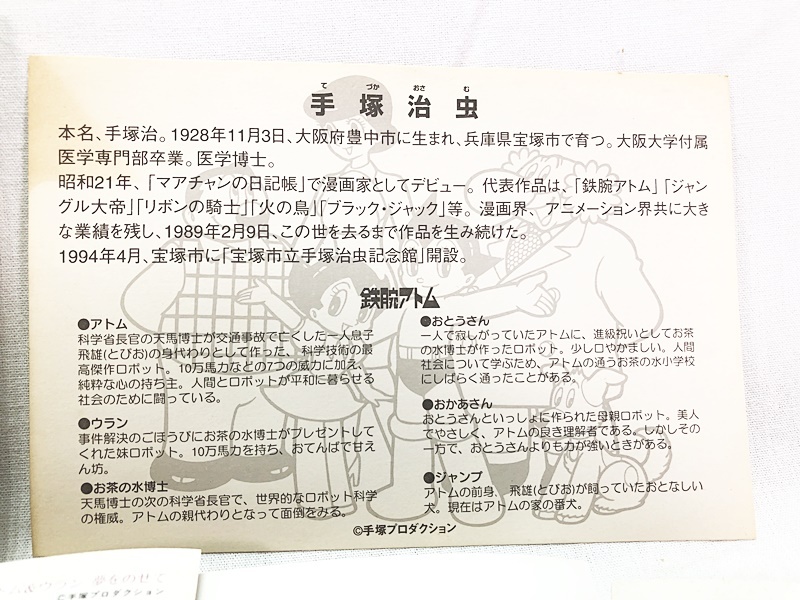 てづかおさむ
手塚治虫
本名、手塚治。1928年11月3日、大阪府豊中市に生まれ、兵庫県宝塚市で育つ。大阪大学付属
医学専門部卒業。医学博士。
昭和21年、「マアチャンの日記帳」で漫画家としてデビュー。代表作品は、「鉄腕アトム」「ジャン
グル大帝」「リボンの騎士」「火の鳥」「ブラック・ジャック」等。漫画界、アニメーション界共に大き
な業績を残し、1989年2月9日、この世を去るまで作品を生み続けた。
1994年4月、宝塚市に「宝塚市立手塚治虫記念館」開設。
鉄腕アトム
●アトム
科学省長官の天馬博士が交通事故で亡くした一人息子
飛雄(とびお)の身代わりとして作った、科学技術の最
高傑作ロボット。10万馬力などの7つの威力に加え、
純粋な心の持ち主。人間とロボットが平和に暮らせる
社会のために闘っている。
●ウラン
事件解決のごほうびにお茶の水博士がプレゼントして
くれた妹ロボット。10万馬力を持ち、おてんばで甘え
ん坊。
●お茶の水博士
天馬博士の次の科学省長官で、世界的なロボット科学
の権威。アトムの親代わりとなって面倒をみる。
●おとうさん
一人で寂しがっていたアトムに、進級祝いとしてお茶
の水博士が作ったロボット。少し口やかましい。人間
社会について学ぶため、アトムの通うお茶の水小学校
にしばらく通ったことがある。
●おかあさん
おとうさんといっしょに作られた母親ロボット。美人
でやさしく、アトムの良き理解者である。しかしその
一方で、おとうさんよりも力が強いときがある。
●ジャンプ
アトムの前身、飛雄(とびお)が飼っていたおとなしい
犬。現在はアトムの家の番犬。
©手塚プロダクション
ウラン 夢をのせて
©手塚プロダクション